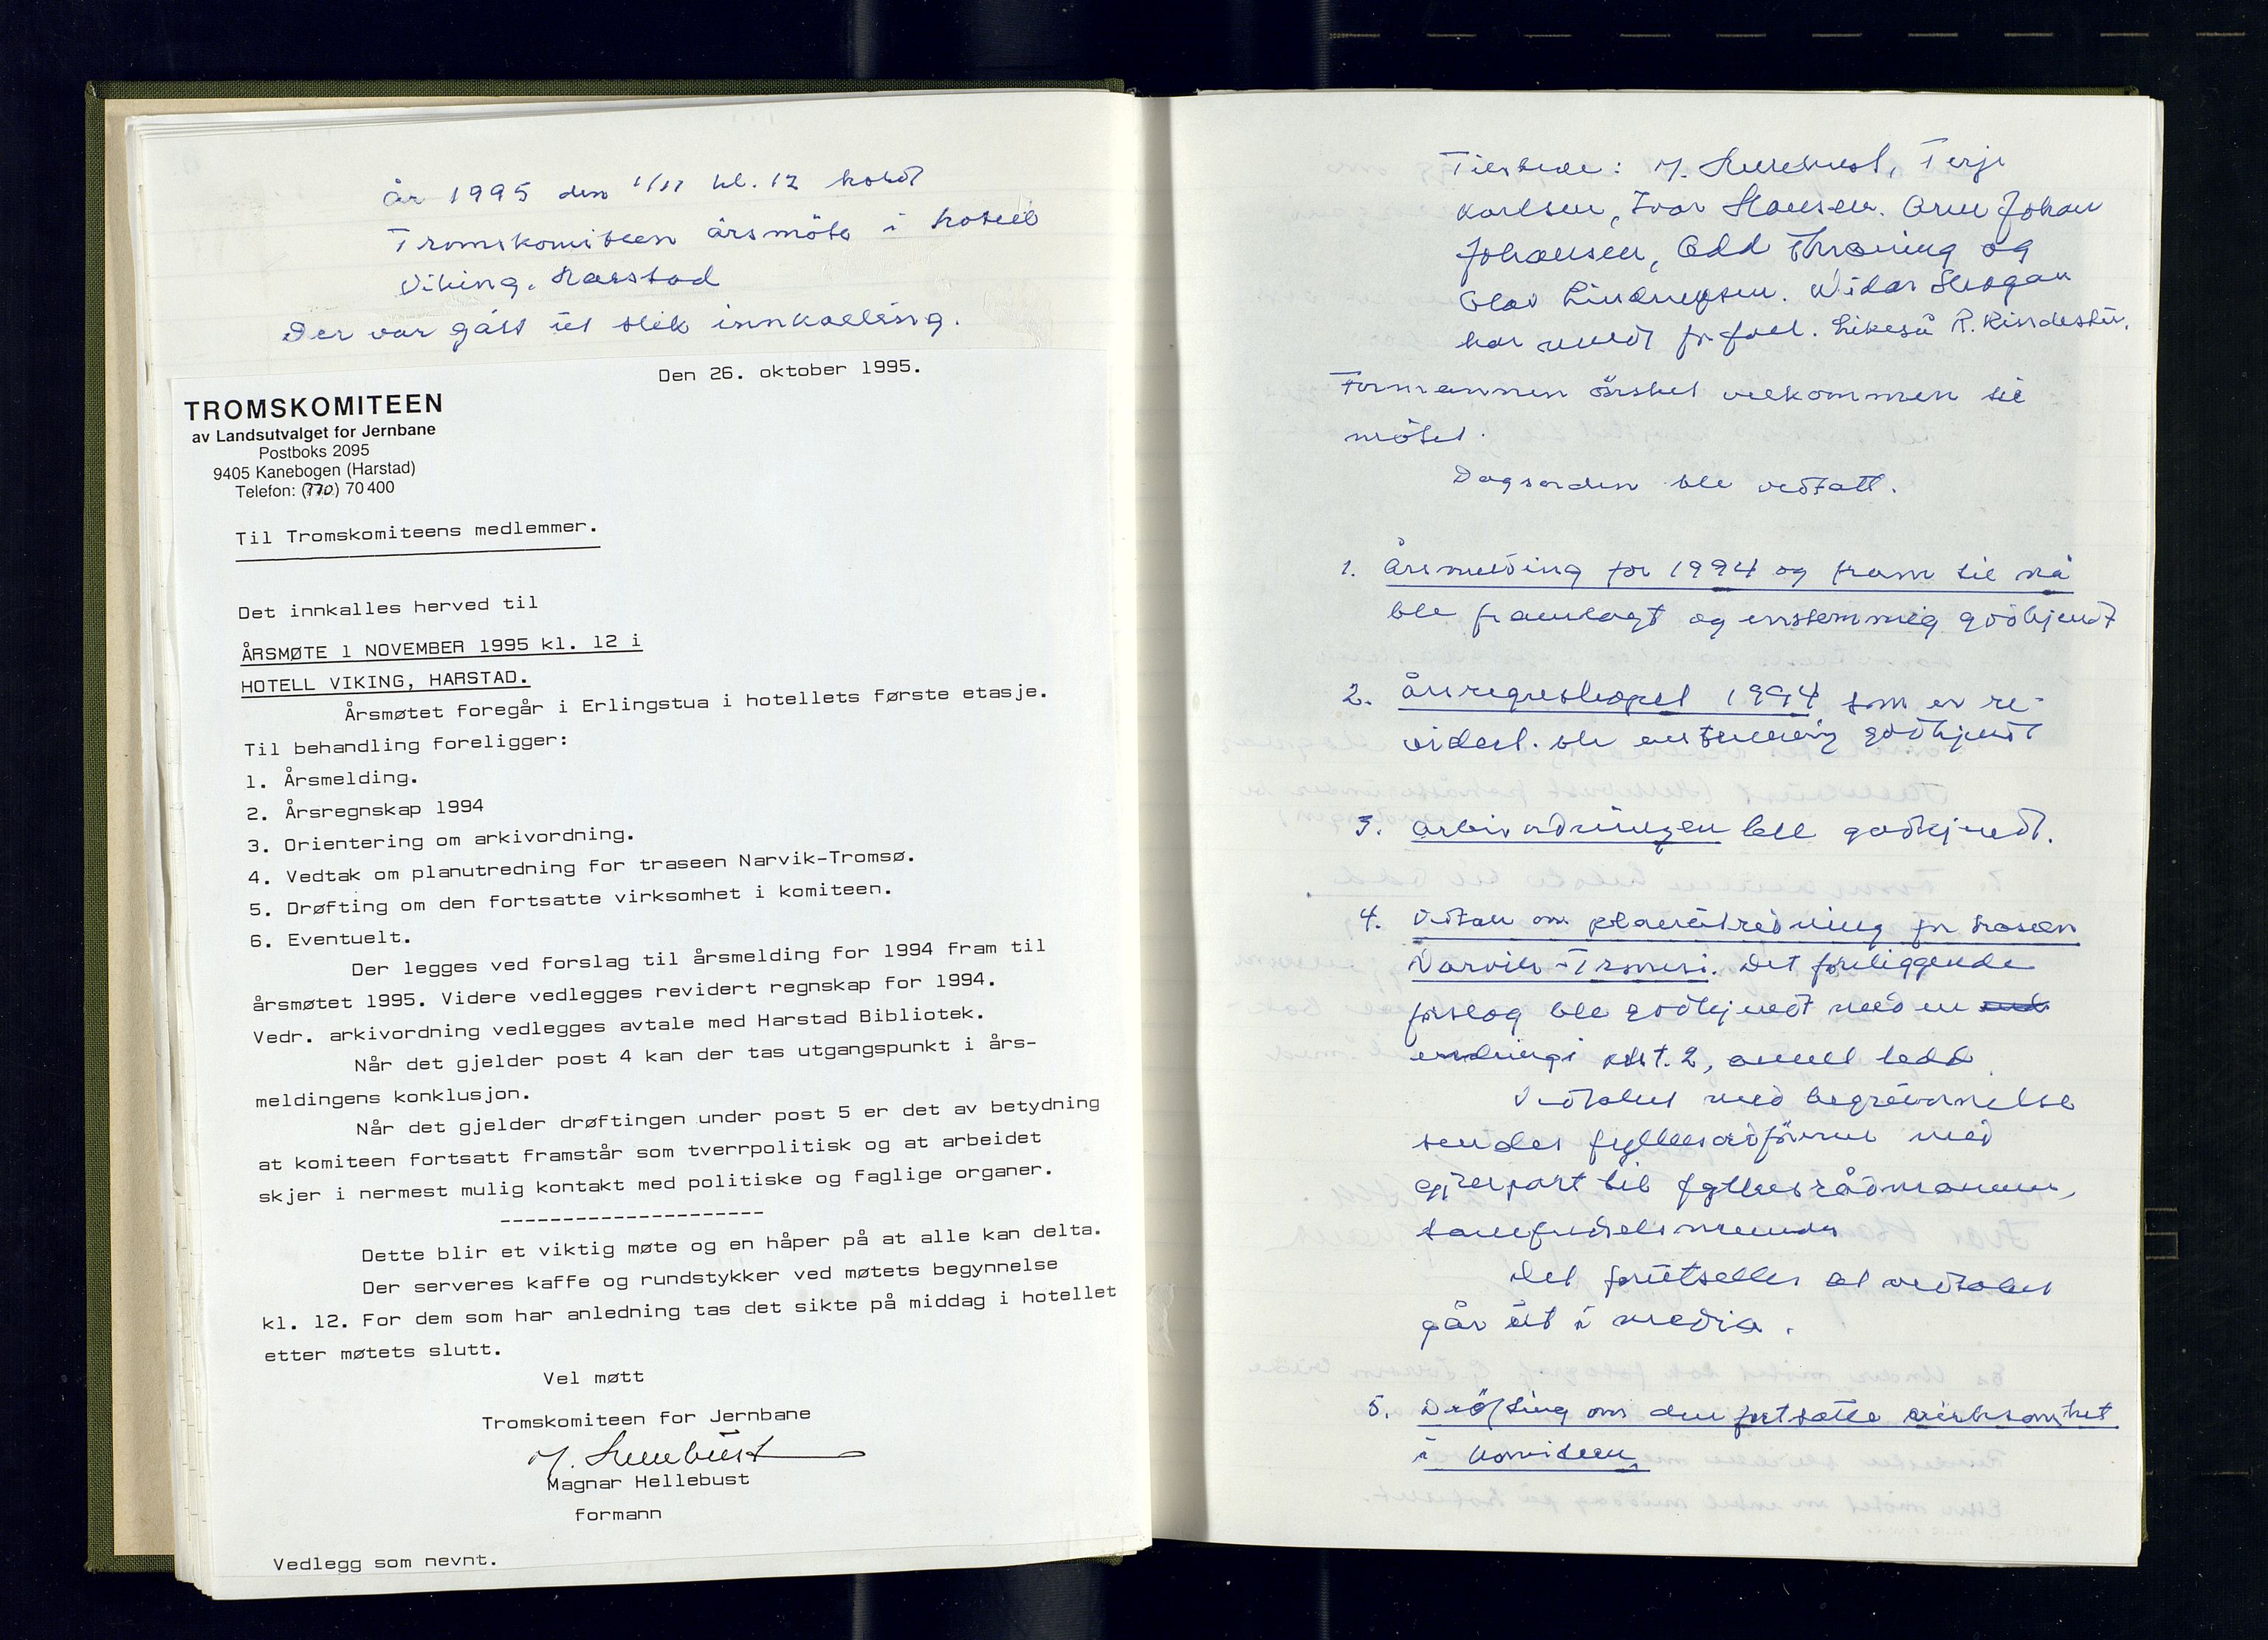 år 1995 den 1/11 kl. 12 holdt
Tromskomiteen årsmöte i hotell
Viking, Harstad
Der var gått ut slik innkalling.
Den 26. oktober 1995.
TROMSKOMITEEN
av Landsutvalget for Jernbane
Postboks 2095
9405 Kanebogen (Harstad)
Telefon: (770) 70 400
Til Tromskomiteens medlemmer.
Det innkalles herved til
ÅRSMØTE 1 NOVEMBER 1995 kl. 12 i
HOTELL VIKING, HARSTAD.
Årsmøtet foregår i Erlingstua i hotellets første etasje.
Til behandling foreligger:
1. Årsmelding.
2. Årsregnskap 1994
3. Orientering om arkivordning.
4. Vedtak om planutredning for traseen Narvik-Tromsø.
5. Drøfting om den fortsatte virksomhet i komiteen.
6. Eventuelt.
Der legges ved forslag til årsmelding for 1994 fram til
årsmøtet 1995. Videre vedlegges revidert regnskap for 1994.
Vedr. arkivordning vedlegges avtale med Harstad Bibliotek.
Når det gjelder post 4 kan der tas utgangspunkt i års-
meldingens konklusjon.
Når det gjelder drøftingen under post 5 er det av betydning
at komiteen fortsatt framstår som tverrpolitisk og at arbeidet
skjer i nermest mulig kontakt med politiske og faglige organer.
---------------------
Dette blir et viktig møte og en håper på at alle kan delta.
Der serveres kaffe og rundstykker ved møtets begynnelse
kl. 12. For dem som har anledning tas det sikte på middag i hotellet
etter møtets slutt.
Vel møtt
Tromskomiteen for Jernbane
M. Hellebust
Magnar Hellebust
formann
Vedlegg som nevnt.
Tilstede: M. Hellebust, Terje
Karlsen, Ivar Hansen. Arne Johan
Johansen, Odd Thraning og
Olav Lindrupsen. Vidar Skogan
har meldt forfall. Likeså R. Rindestu.
Formannen ønsket velkommen til
møtet.
Dagsorden ble vedtatt.
1. Årsmelding for 1994 og fram til nå
ble framlagt og enstemmig godkjendt
2. Årsregnskapet 1994 som er re-
vidert. ble enstemmig godkjendt
3. Arkivordningen ble godkjendt.
4. Vedtak om planutredning for traseen
Narvik-Tromsø. Det foreliggende
forslag ble godkjendt med en
endring i pkt. 2, annet ledd
Vedtaket med begrunnelse
sendes fylkesordføreren med
gjenpart til fylkesrådmannen,
samferdsels
Det forutsettes at vedtaket
går ut i media.
5. Drøfting om den fortsatte virksomhet
i komiteen.